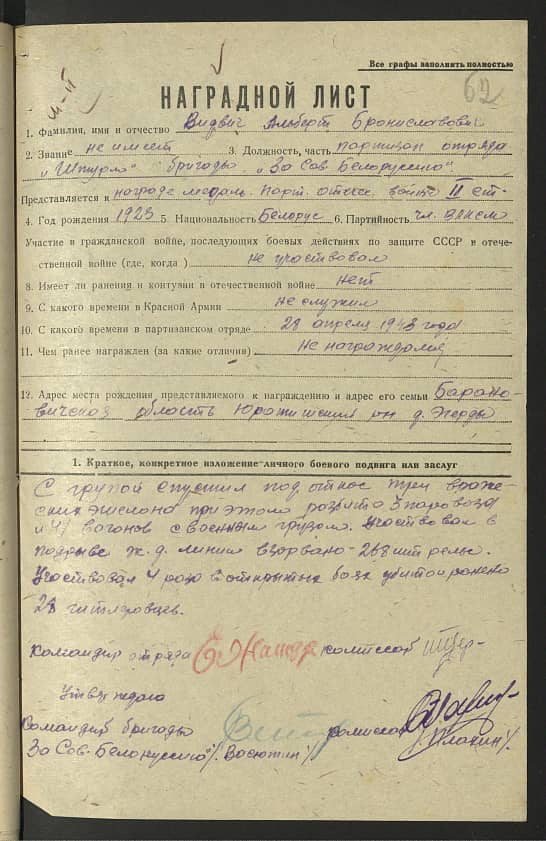 Все графы заполнить полностью
62
НАГРАДНОЙ ЛИСТ
1. Фамилия, имя и отчество Видвич Альберт Брониславович
2. Звание не имеет 3. Должность, часть партизан отряда
"Шturмо" бригады "За Сов. Белоруссию"
Представляется к награде медаль Парт. отеч. войны II ст.
4. Год рождения 1923 5. Национальность Белорус 6. Партийность чл. ВЛКСМ
Участие в гражданской войне, последующих боевых действиях по защите СССР в отече-
ственной войне (где, когда) не участвовал
8. Имеет ли ранения и контузии в отечественной войне нет
9. С какого времени в Красной Армии не служил
10. С какого времени в партизанском отряде 28 апреля 1943 года
11. Чем ранее награжден (за какие отличия) не награждался
12. Адрес места рождения представляемого к награждению и адрес его семьи Барано-
вичская область Юратишский рн д. Эгерды
1. Краткое, конкретное изложение личного боевого подвига или заслуг
С групой спустил под откос три враже-
ских эшелона при этом розбито 3 паровоза
и 41 вагонов с военным грузом. Участвовал в
подрыве ж.д. линии взорвано - 268 шт рельс.
Участвовал 4 раза в открытых боях убито и ранено
28 гитлеровцев.
Командир отряда комиссар
Утверждаю
Командир бригады комиссар
"За Сов. Белоруссию" /. Васютин / /